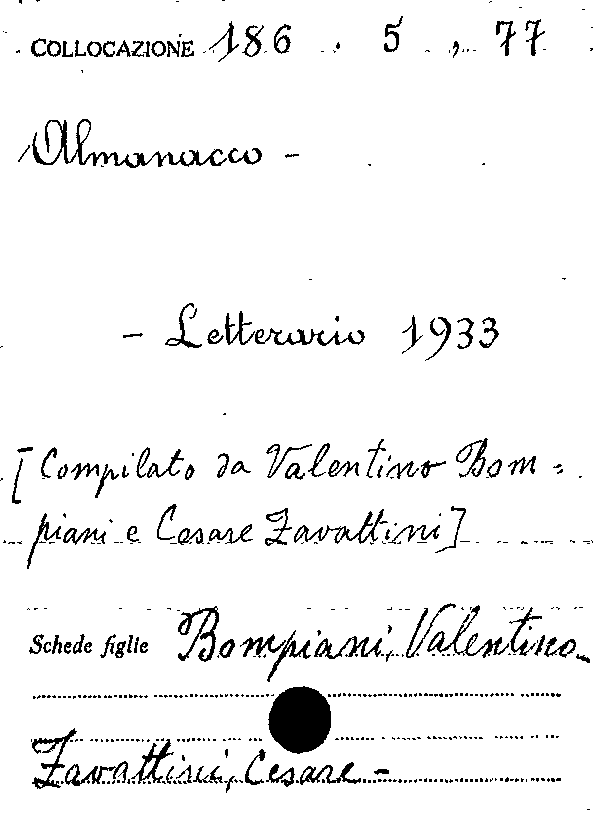 COLLOCAZIONE 186 . 5 , 77
Almanacco -
- Letterario 1933
[Compilato da Valentino Bom=
piani e Cesare Zavattini]
Schede figlie Bompiani, Valentino-
Zavattini, Cesare -